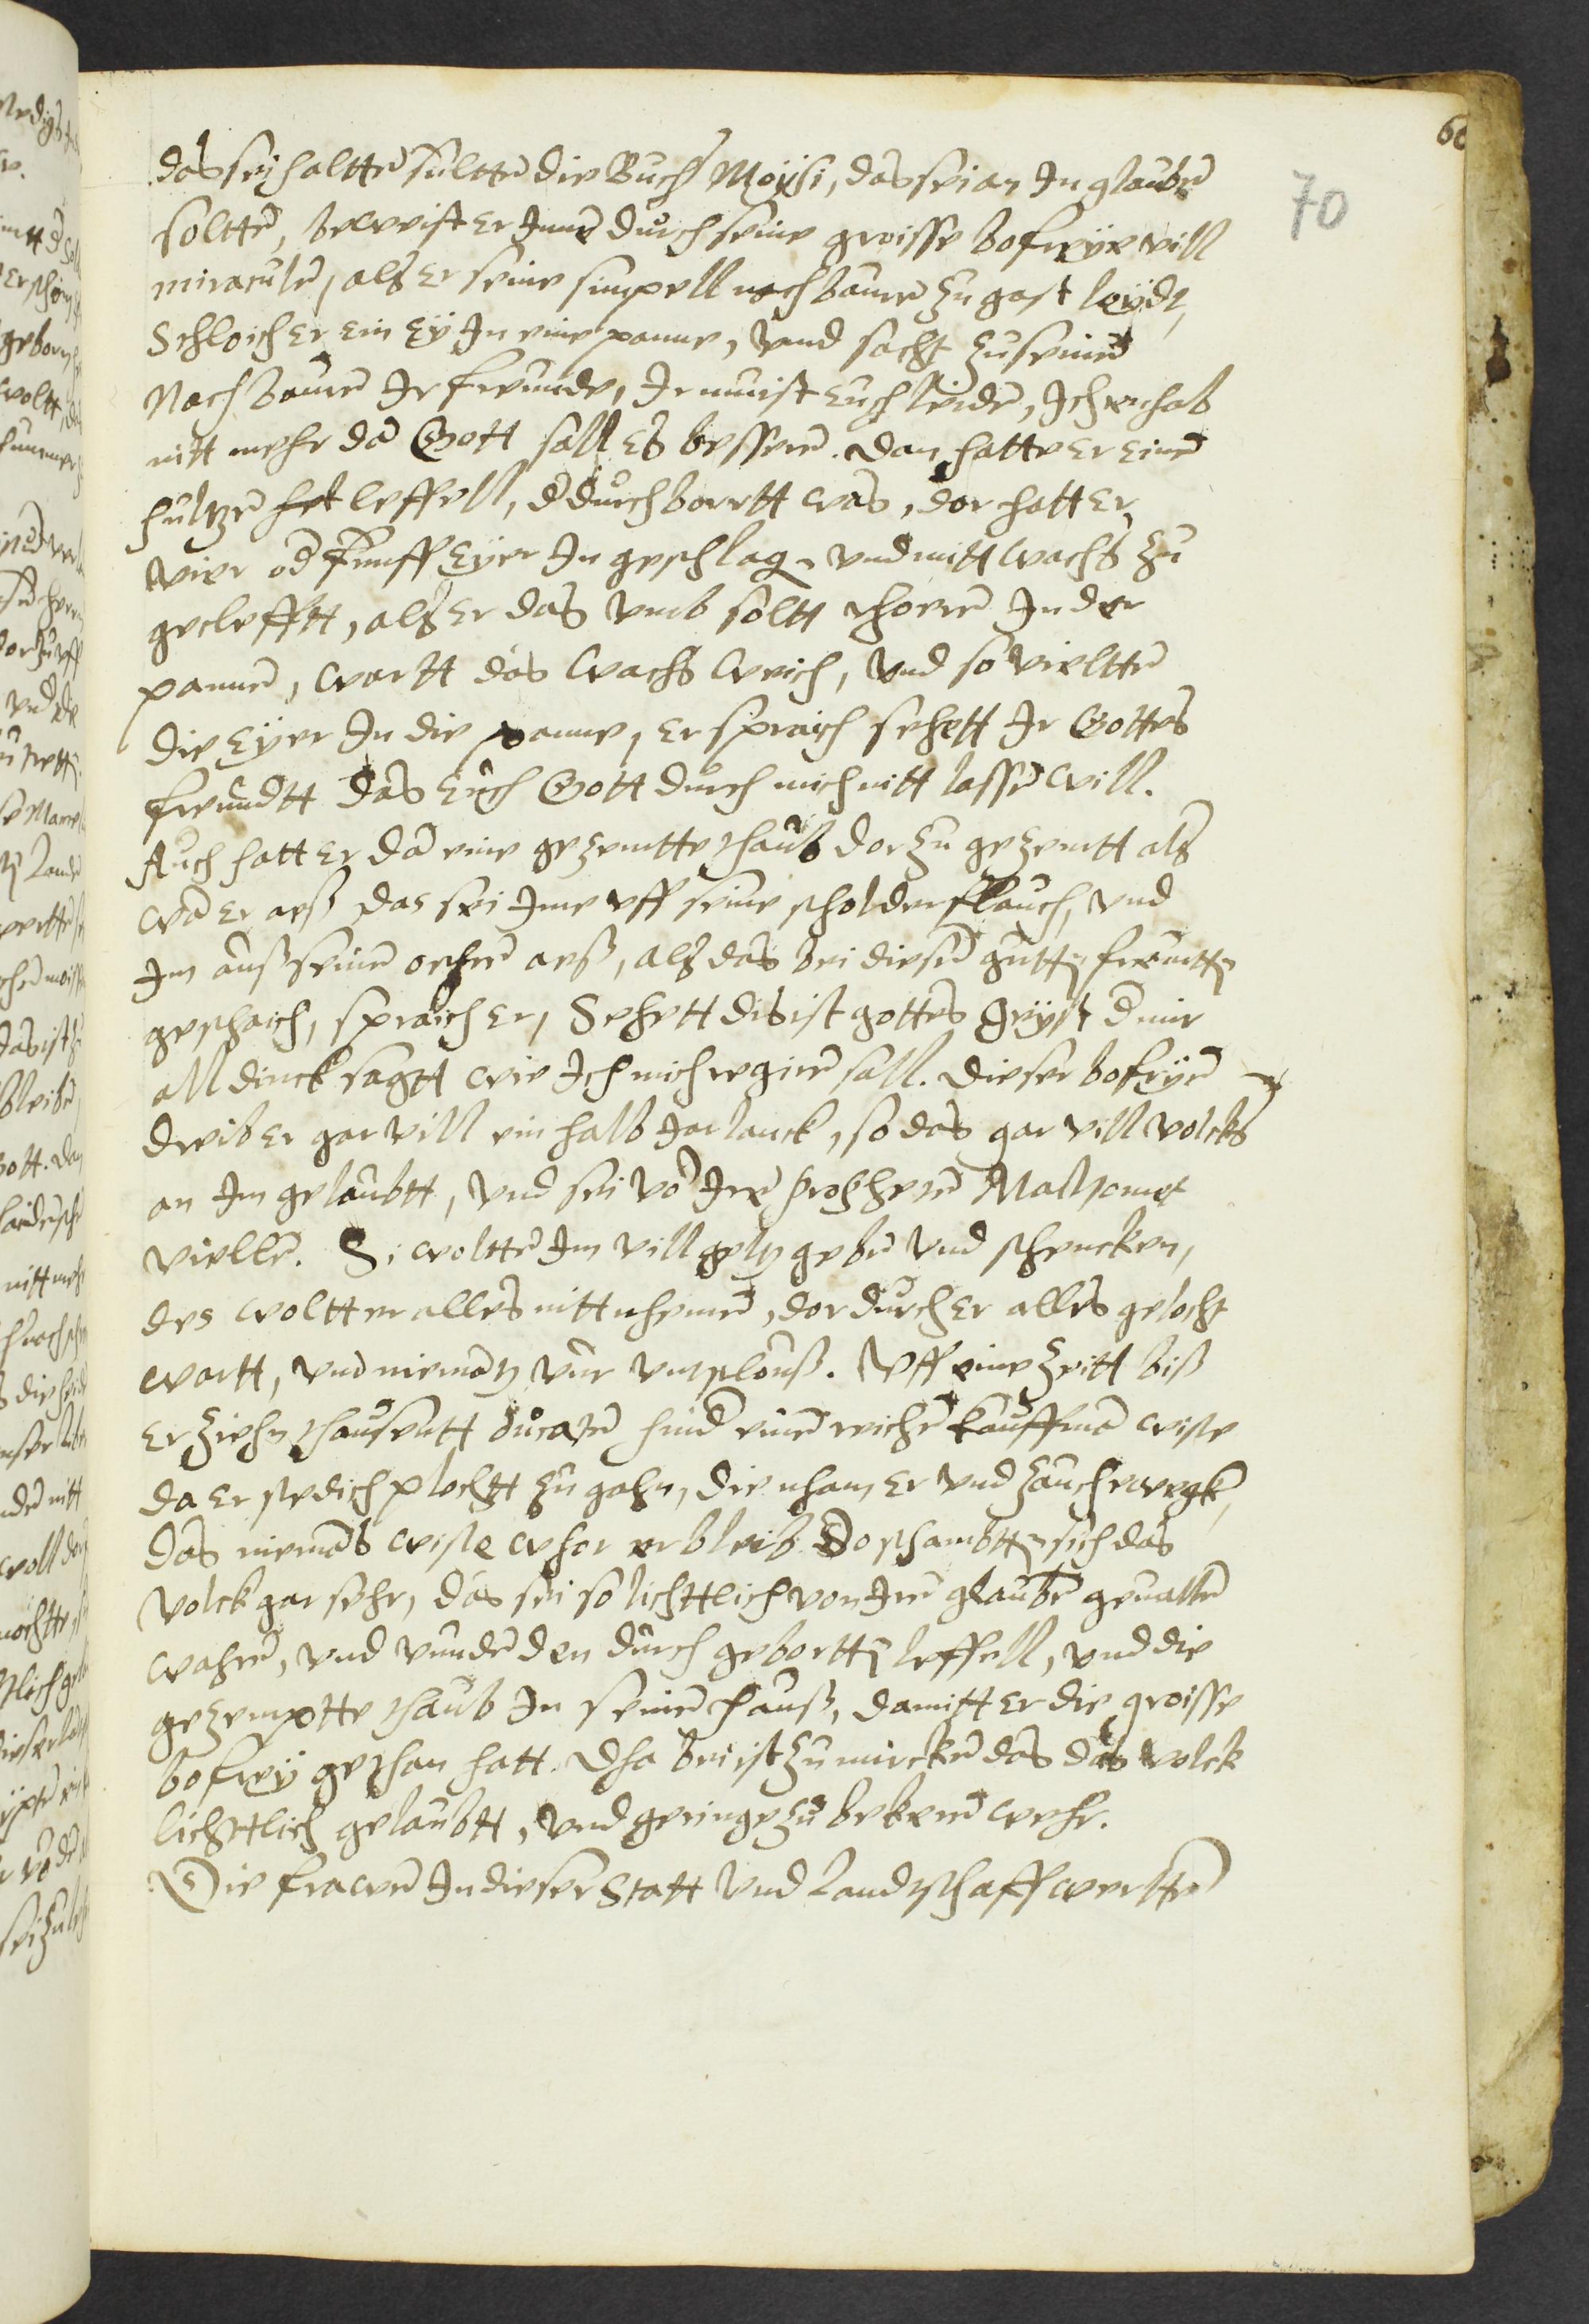 60
70
das seÿ haltten sultten die Buch Moÿsi, das sei an In glauben
soltten, beweist er Innen durch seine groisse bofreÿe vill
miraculen, als er seine simpell nachbauren zu gast leÿdt,
Schloich er ein Eÿ In eine panne, vnd sacht zu seinen
Nachbauren Ir freunde, Ir muist euch leiden, Ich enhab
nitt mehr dan Gott sall es besseren. Dan hatte er einen
hultzen leffell, d durchborett was, dor hatt er
vier od funff Eÿer In geschlagen vnd mitt wachs zu
gecleefftt, als er das vmb soltt rhoeren In der
pannen, wartt das wachs weich, vnd so vieltten
die Eÿer In die panne, er spraich sehett Ir Gottes
freundtt das euch Gott durch mich nitt lassen will.
Auch hatt er dan eine gezemtte thaub dorzu gezemtt als
wan er aeß das sei Ime vff seine scholder flauch, vnd
Im auß seinen oehren aeß, als das bei diesen gutten freuntten
geschaich, spraich er, Sehett dis ist gottes Geÿst d mir
all dinck sagtt wie Ich mich regiren sall. Dieser bofreÿen
dreib er gar vill ein halb Jar lanck, so das gar vill volcks
an Im gelaubtt, vnd sei von Iren propheten Mahomet
viellen. Si woltten Im vill geltz geben vnd schencken,
des woltt er alles nitt nhemen, dor durch er alles gelocht
wartt, vnd niemantz vur vntsloiß. Vff eine zeitt biß
er ziehn thausentt ducaten hind einen reichen kauffman wiste
da er stedich plochtt zu gahn, die nham er vnd zauch ewegk,
das niemans wiste whor er bleib. Do schambtten sich das
volck gar sehr, das sei so lichttlich von Iren glauben geuallen
wahren, vnd vunden den durch gebortten leffell, vnd die
gezempotte thaub In seinen hauß, damitt er die groisse
bofreÿ gethan hatt. Dha bei ist zu mircken das das volck
lichttlich gelaubtt, vnd geringe zu bekeren wehr.
Die frawen In dieser Statt vnd Landtschaff werltten